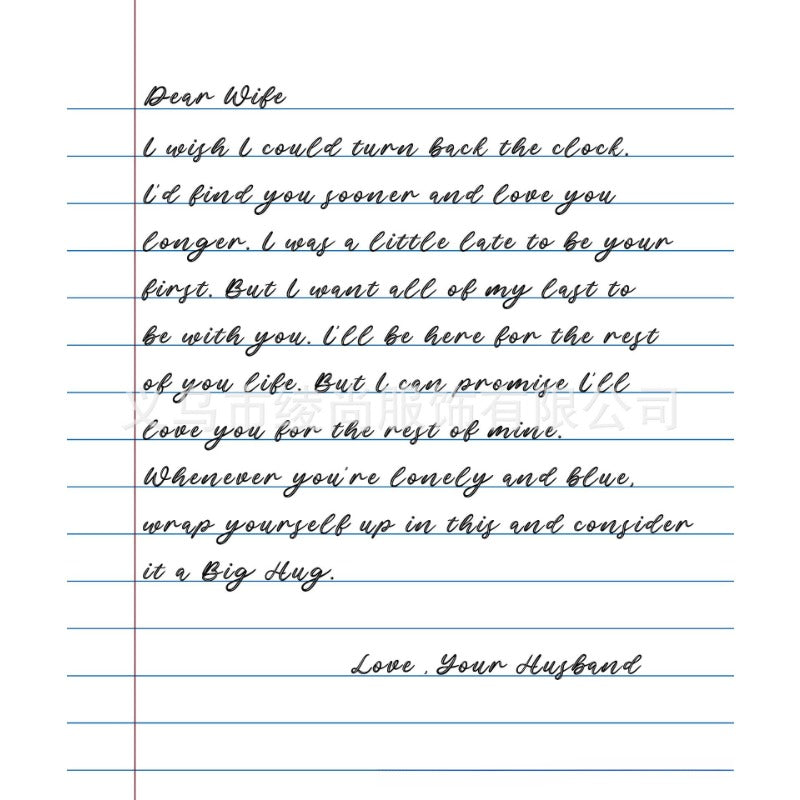 Dear Wife
I wish I could turn back the clock.
I'd find you sooner and love you
longer. I was a little late to be your
first. But I want all of my last to
be with you. I'll be here for the rest
of you life. But I can promise I'll
义乌市绫尚服饰有限公司
love you for the rest of mine.
Whenever you're lonely and blue,
wrap yourself up in this and consider
it a Big Hug.
Love , Your Husband